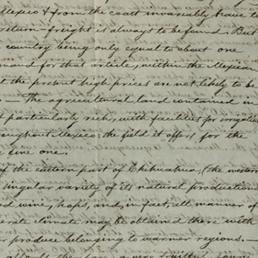 Mexico & from the coast invariably have to
return-freight is always to be found. But
country being only equal to about one
mand for this article, within the Mexican
at the present high prices are not likely to be
The agricultural land contained in
particularly rich, with facilities for irrigation
throughout Mexico; the field it offers for the
fine one.
of the eastern part of Chihuahua, (the western
singular variety of its natural production
wine, hops, and, in fact, all manner of
climate may be obtained there with
produce belonging to warmer regions. —